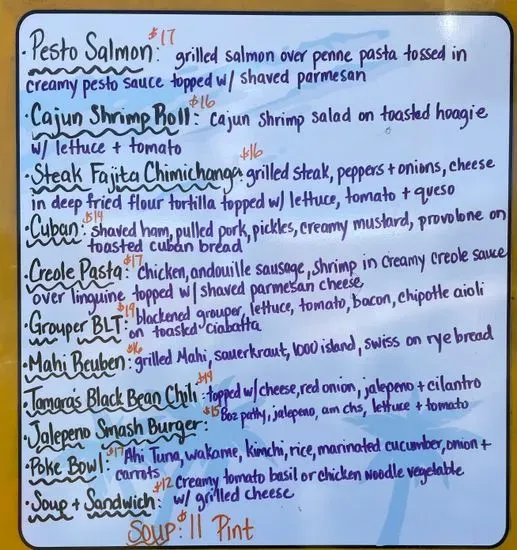 · Pesto Salmon: $17 grilled salmon over penne pasta tossed in
creamy pesto sauce topped w/ shaved parmesan
· Cajun Shrimp Roll: $16 cajun shrimp salad on toasted hoagie
w/ lettuce + tomato
· Steak Fajita Chimichanga: $16 grilled steak, peppers + onions, cheese
in deep fried flour tortilla topped w/ lettuce, tomato + queso
· Cuban: $14 shaved ham, pulled pork, pickles, creamy mustard, provolone on
toasted cuban bread
· Creole Pasta: $17 chicken, andouille sausage, shrimp in creamy creole sauce
over linguine topped w/ shaved parmesan cheese
· Grouper BLT: $19 blackened grouper, lettuce, tomato, bacon, chipotle aioli
on toasted ciabatta
· Mahi Reuben: $16 grilled Mahi, sauerkraut, 1000 island, swiss on rye bread
· Tamara's Black Bean Chili: $14 topped w/ cheese, red onion, jalepeno + cilantro
· Jalepeno Smash Burger: $15 8oz patty, jalepeno, am chs, lettuce + tomato
· Poke Bowl: $17 Ahi Tuna, wakame, kimchi, rice, marinated cucumber, onion +
carrots
· Soup + Sandwich: $12 Creamy tomato basil or chicken noodle vegetable
w/ grilled cheese
Soup: $11 Pint